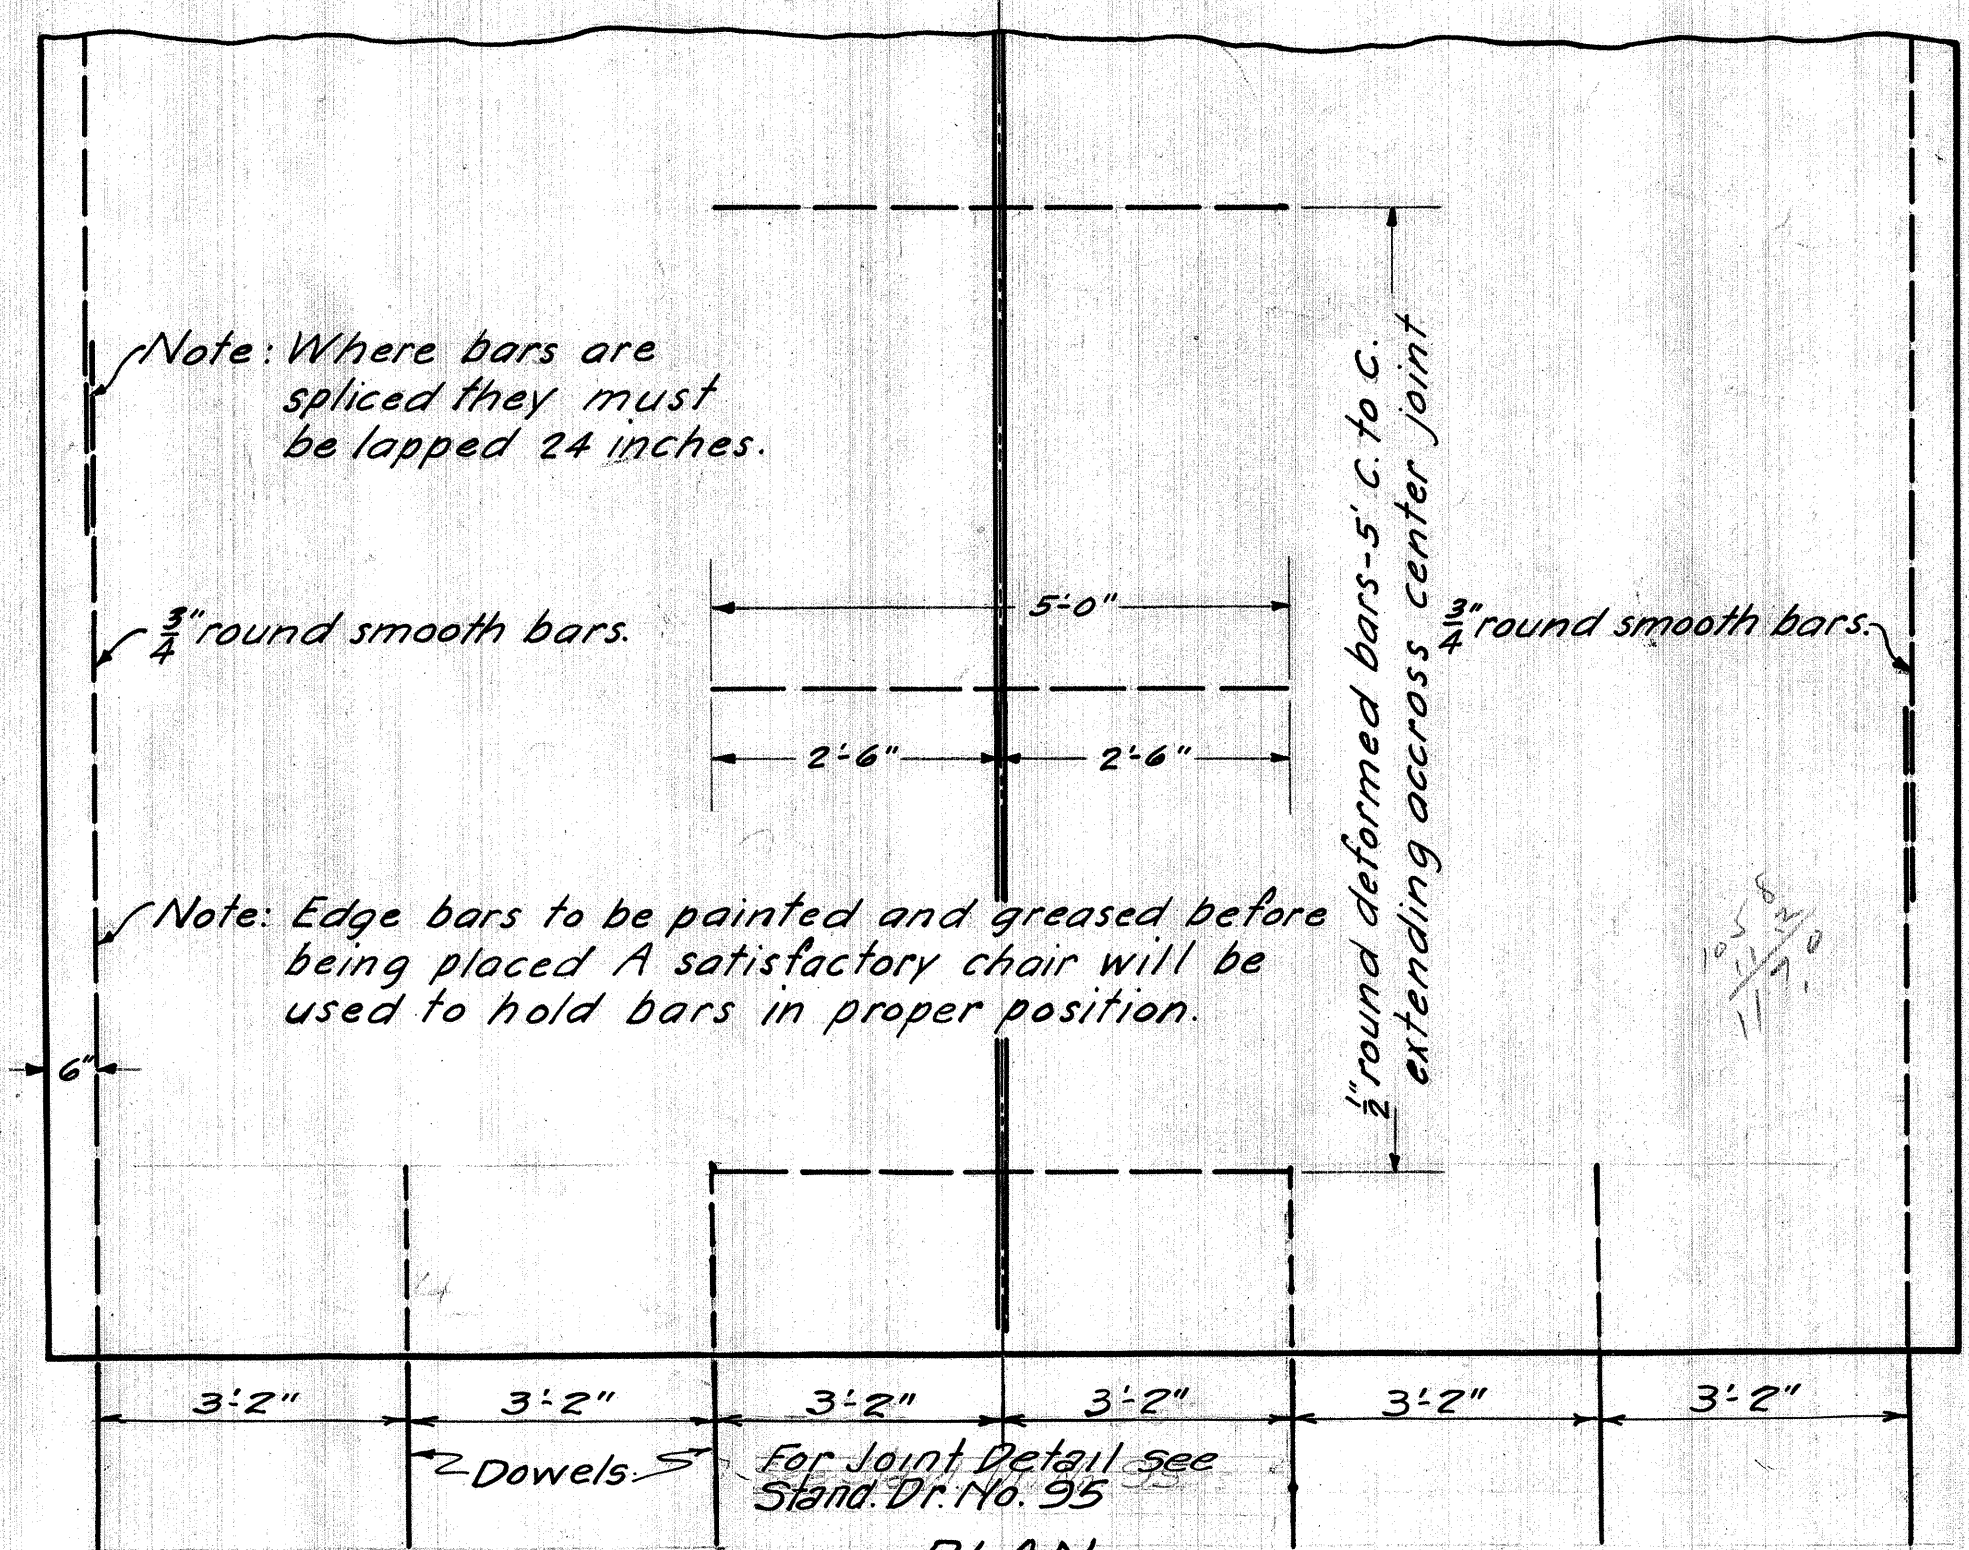 Note: Where bars are
spliced they must
be lapped 24 inches.
5'-0"
3/4" round smooth bars.
3/4" round smooth bars.
2'-6" 2'-6"
1/2" round deformed bars-5' C. to C.
extending accross center joint
Note: Edge bars to be painted and greased before
being placed A satisfactory chair will be
used to hold bars in proper position.
6"
3'-2" 3'-2" 3'-2" 3'-2" 3'-2" 3'-2"
Dowels.
For Joint Detail see
Stand. Dr. No. 95
PLAN